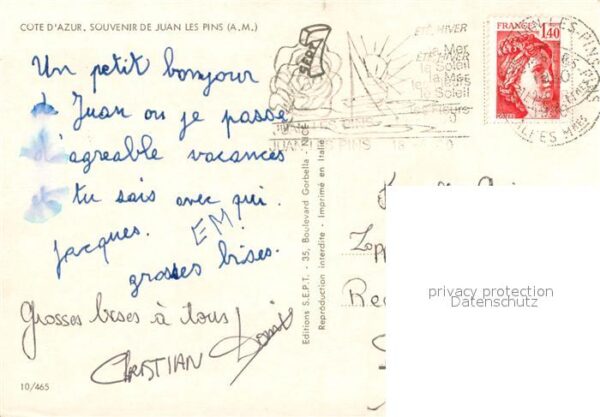 COTE D'AZUR, SOUVENIR DE JUAN LES PINS (A.M.)
Un petit bonjour
d Juan ou je passe
d'agreable vacances
tu sais avec qui.
Jacques.
EM!
grosses bises.
Grosses bises à tous
CHRISTIAN
10/465
Editions S.E.P.T. - 35, Boulevard Gorbella - NICE
Reproduction interdite - Imprimé en Italie
SEPT
ETE, HIVER
la Mer
le Soleil
JUAN LES PINS
FRANCE
1,40
privacy protection
Datenschutz